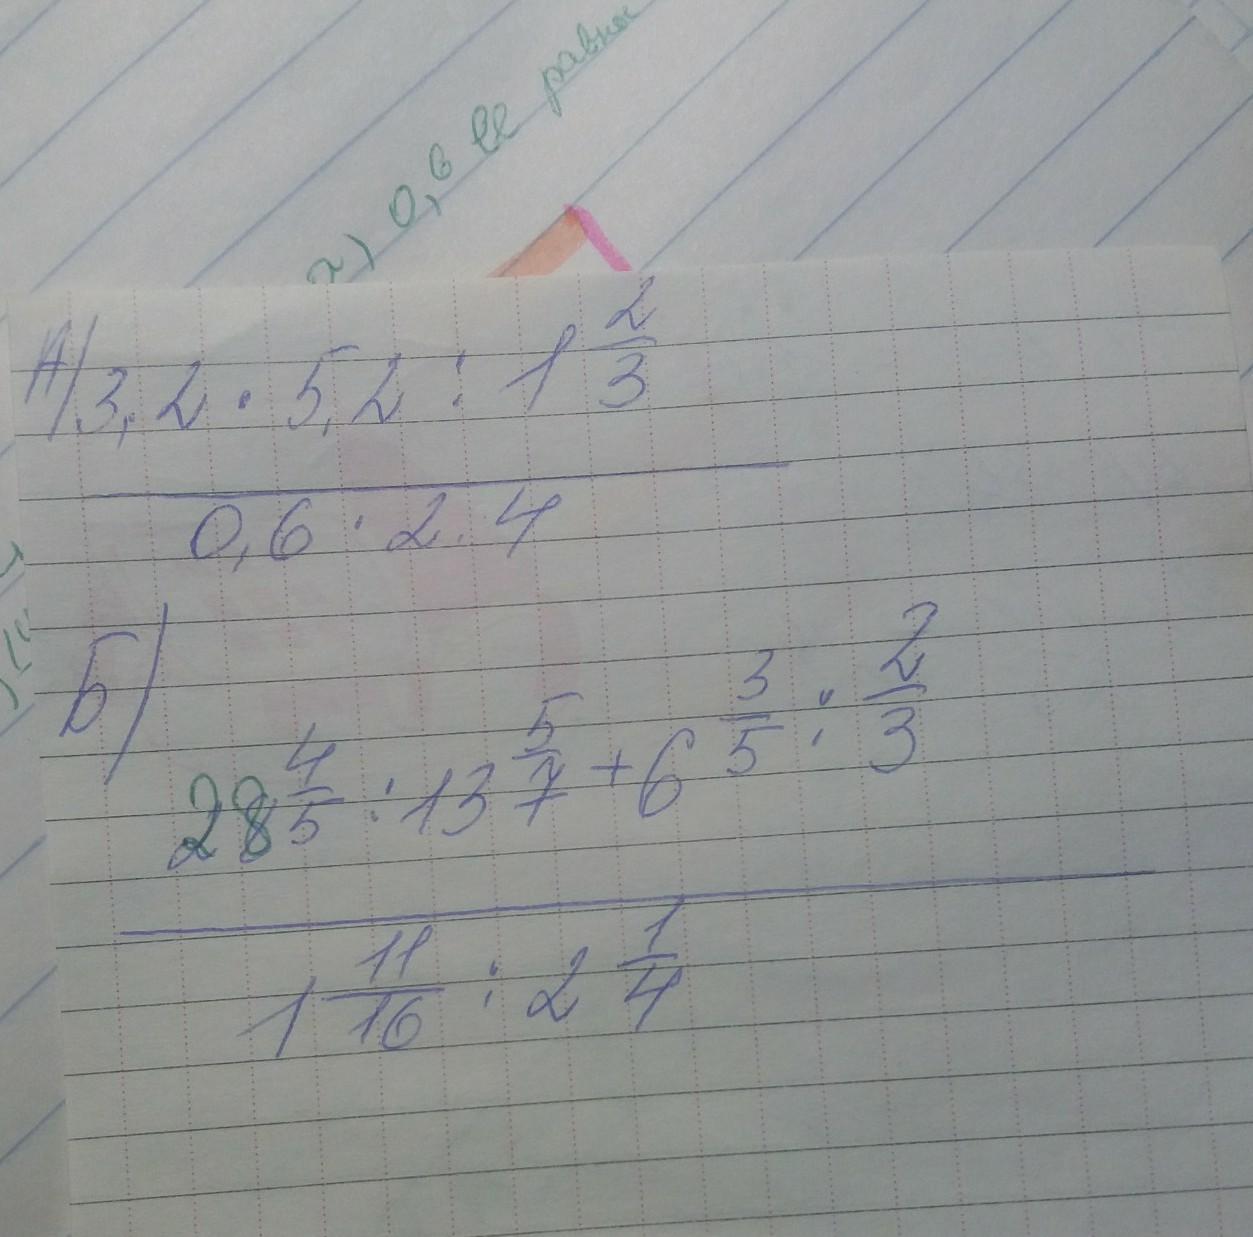 2) 0,6 её равно
А) 3,2 · 5,2 : 1 2/3
0,6 · 2.4
Б)
28 4/5 : 13 5/7 + 6 3/5 : 2/3
1 11/16 : 2 1/4